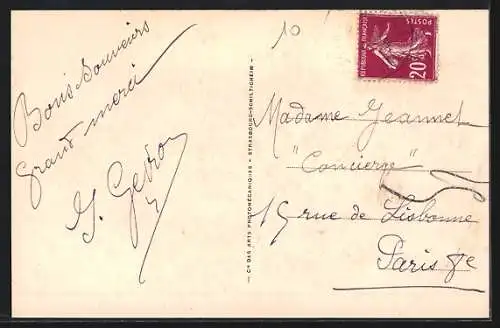 Bons Souvenirs
grand merci
10
REPUBLIQUE FRANÇAISE
POSTES
20c
Madame Jeannet
"Concierge"
15 rue de Lisbonne
Paris 8e
— Cie DES ARTS PHOTOMÉCANIQUES - STRASBOURG-SCHILTIGHEIM —